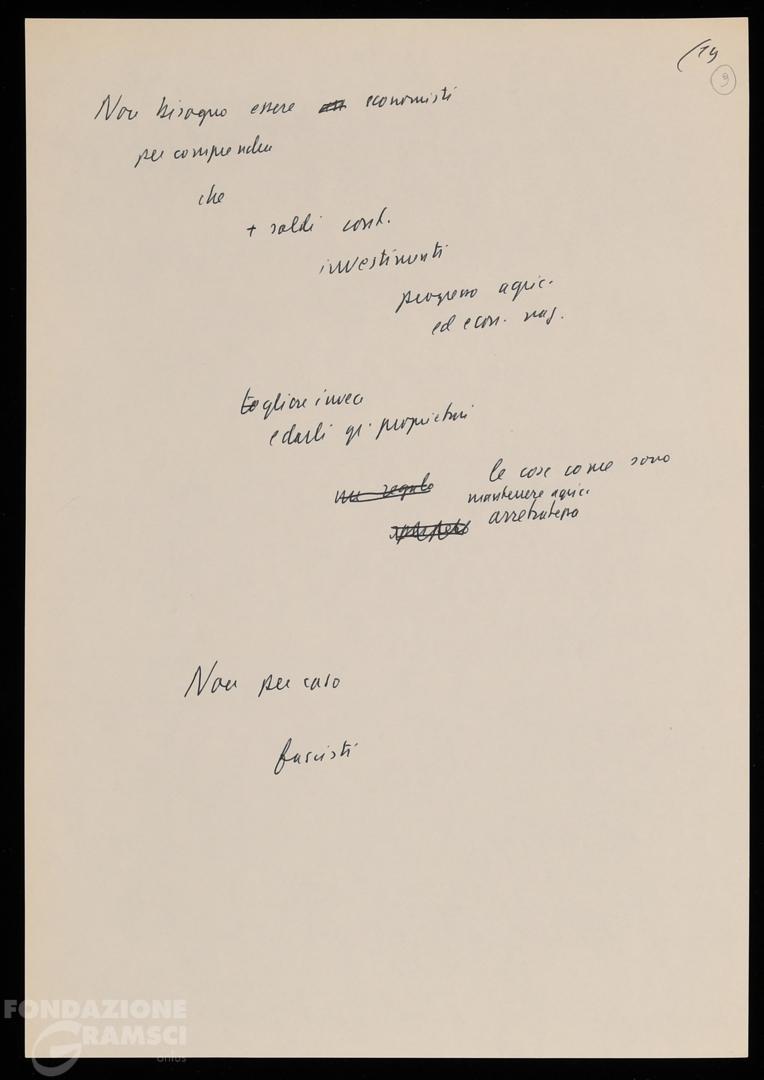 (19
9
Non bisogna essere economisti
per comprendere
che
+ soldi cont.
investimenti
progresso agric.
ed econ. naz.
togliere invece
e darli gr. proprietari
un regalo
le cose come sono
mantenere agric.
arretratezza
Non per caso
fascisti
FONDAZIONE
GRAMSCI
onlus